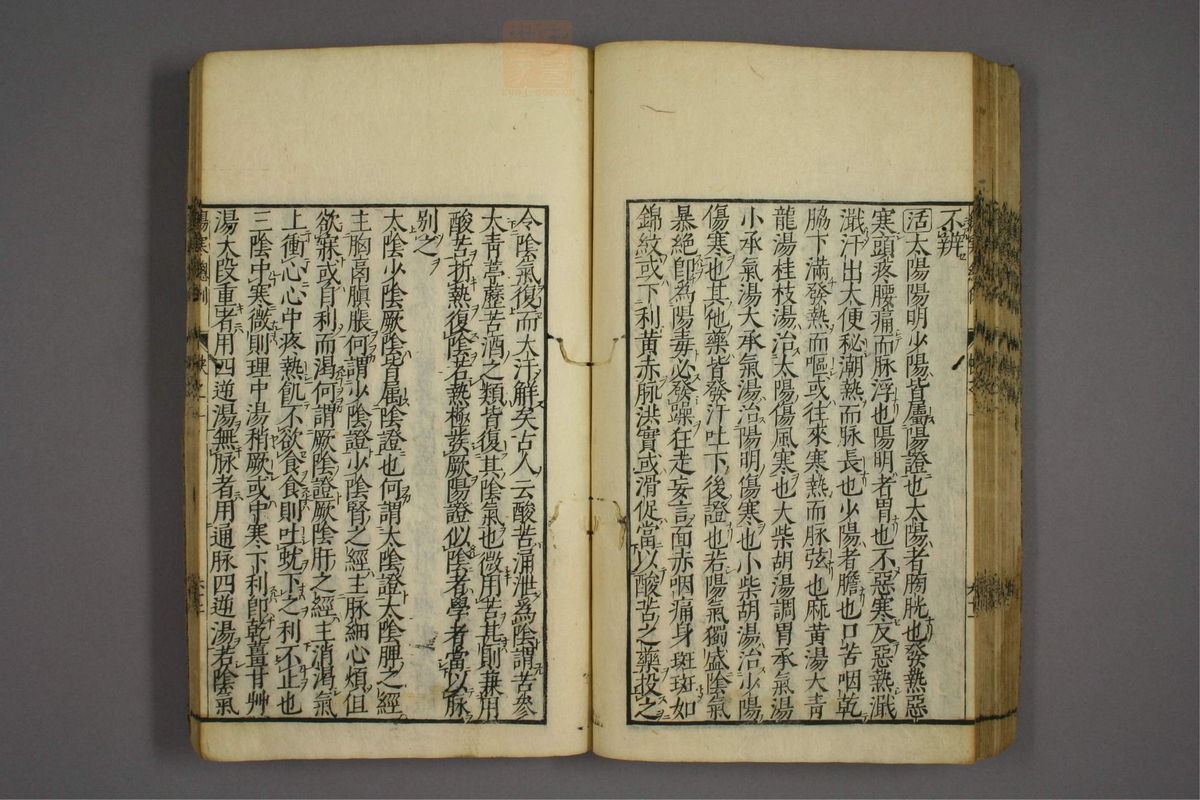 不辨
活太陽陽明少陽皆屬陽證也太陽者膀胱也發熱惡
寒頭疼腰痛而脉浮也陽明者胃也不惡寒反惡熱濈
濈汗出大便秘潮熱而脉長也少陽者膽也口苦咽乾
脇下滿發熱而嘔或往來寒熱而脉弦也麻黄湯大青
龍湯桂枝湯治太陽傷風寒也大柴胡湯調胃承氣湯
小承氣湯大承氣湯治陽明傷寒也小柴胡湯治少陽
傷寒也其他藥皆發汗吐下後證也若陽氣獨盛陰氣
暴絶卽爲陽毒必發躁狂走妄言面赤咽痛身斑斑如
錦紋或下利黄赤脉洪實或滑促當以酸苦之藥投之
令陰氣復而大汗解矣古人云酸苦涌泄爲陰謂苦參
大青葶藶苦酒之類皆復其陰氣也微用苦甚則兼用
酸苦折熱復陰若熱極發厥陽證似陰者學者當以脉
别之
太陰少陰厥陰皆屬陰證也何謂太陰證太陰脾之經
主胸膈䐜脹何謂少陰證少陰腎之經主脉細心煩但
欲寐或自利而渴何謂厥陰證厥陰肝之經主消渴氣
上衝心心中疼熱飢不欲食食則吐蚘下之利不止也
三陰中寒微則理中湯稍厥或中寒下利卽乾薑甘艸
湯大段重者用四逆湯無脉者用通脉四逆湯若陰氣
傷寒總例